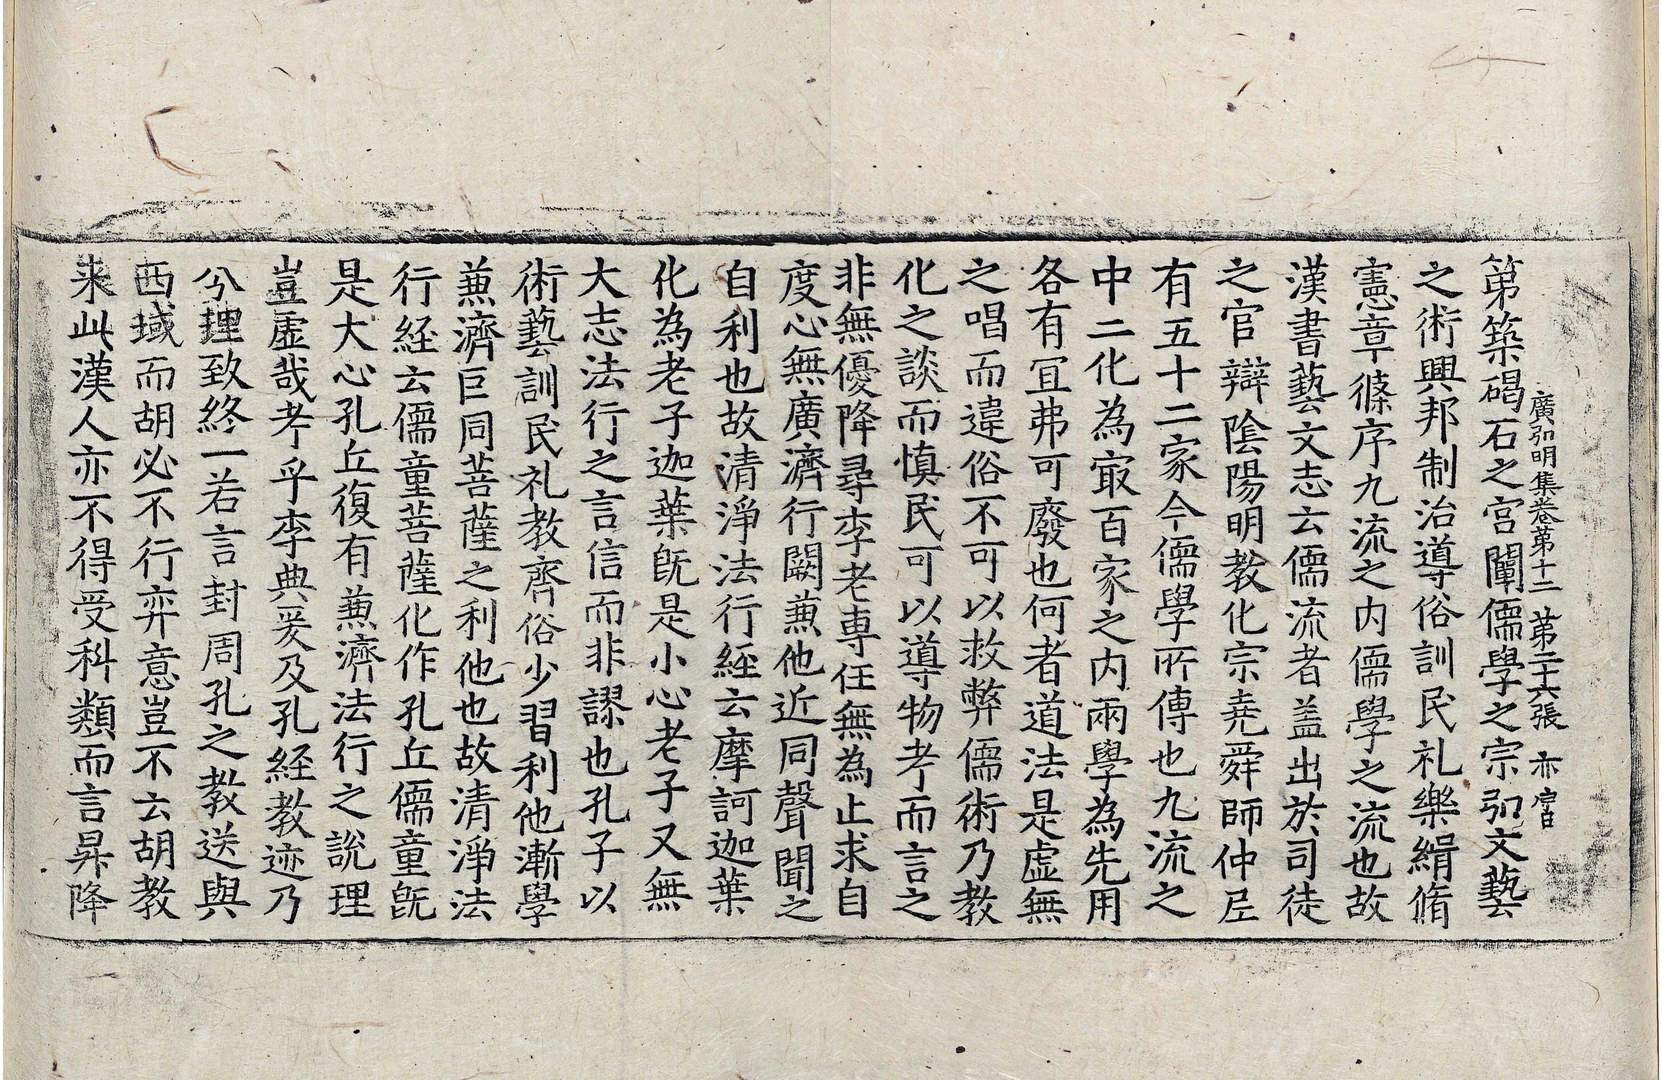 廣弘明集卷第十二 第二十六張 亦字号
第築碣石之宮闡儒學之宗弘文藝
之術興邦制治導俗訓民礼樂緝脩
憲章條序九流之内儒學之流也故
漢書藝文志云儒流者盖出於司徒
之官辯陰陽明教化宗堯舜師仲尼
有五十二家今儒學所傳也九流之
中二化為㝡百家之内兩學為先用
各有冝弗可廢也何者道法是虛無
之唱而違俗不可以救弊儒術乃教
化之談而慎民可以導物考而言之
非無優降尋李老專任無為止求自
度心無廣濟行闕兼他近同聲聞之
自利也故清淨法行經云摩訶迦葉
化為老子迦葉旣是小心老子又無
大志法行之言信而非謬也孔子以
術藝訓民礼教齊俗少習利他漸學
兼濟巨同菩薩之利他也故清淨法
行経云儒童菩薩化作孔丘儒童旣
是大心孔丘復有兼濟法行之說理
豈虛哉考乎李典爰及孔経教迹乃
兮理致終一若言封周孔之教送與
西域而胡必不行弈意豈不云胡教
来此漢人亦不得受科類而言昇降